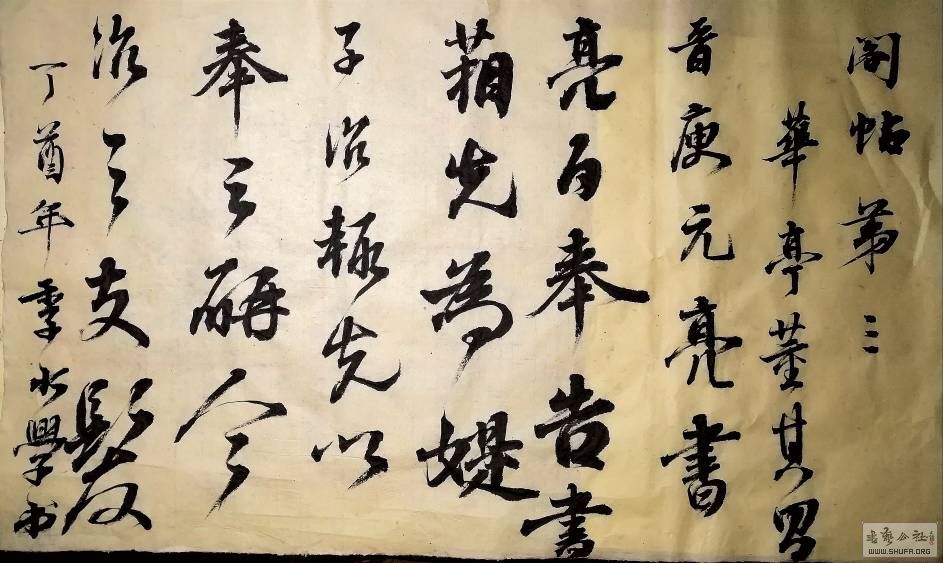 閣帖第三
華亭董其昌
晉庾元亮書
亮白奉告書
箱先為媞
子治極先以
奉之今
治之支髮
丁酉年季水學書
書藝公社
WWW.SHUFA.ORG